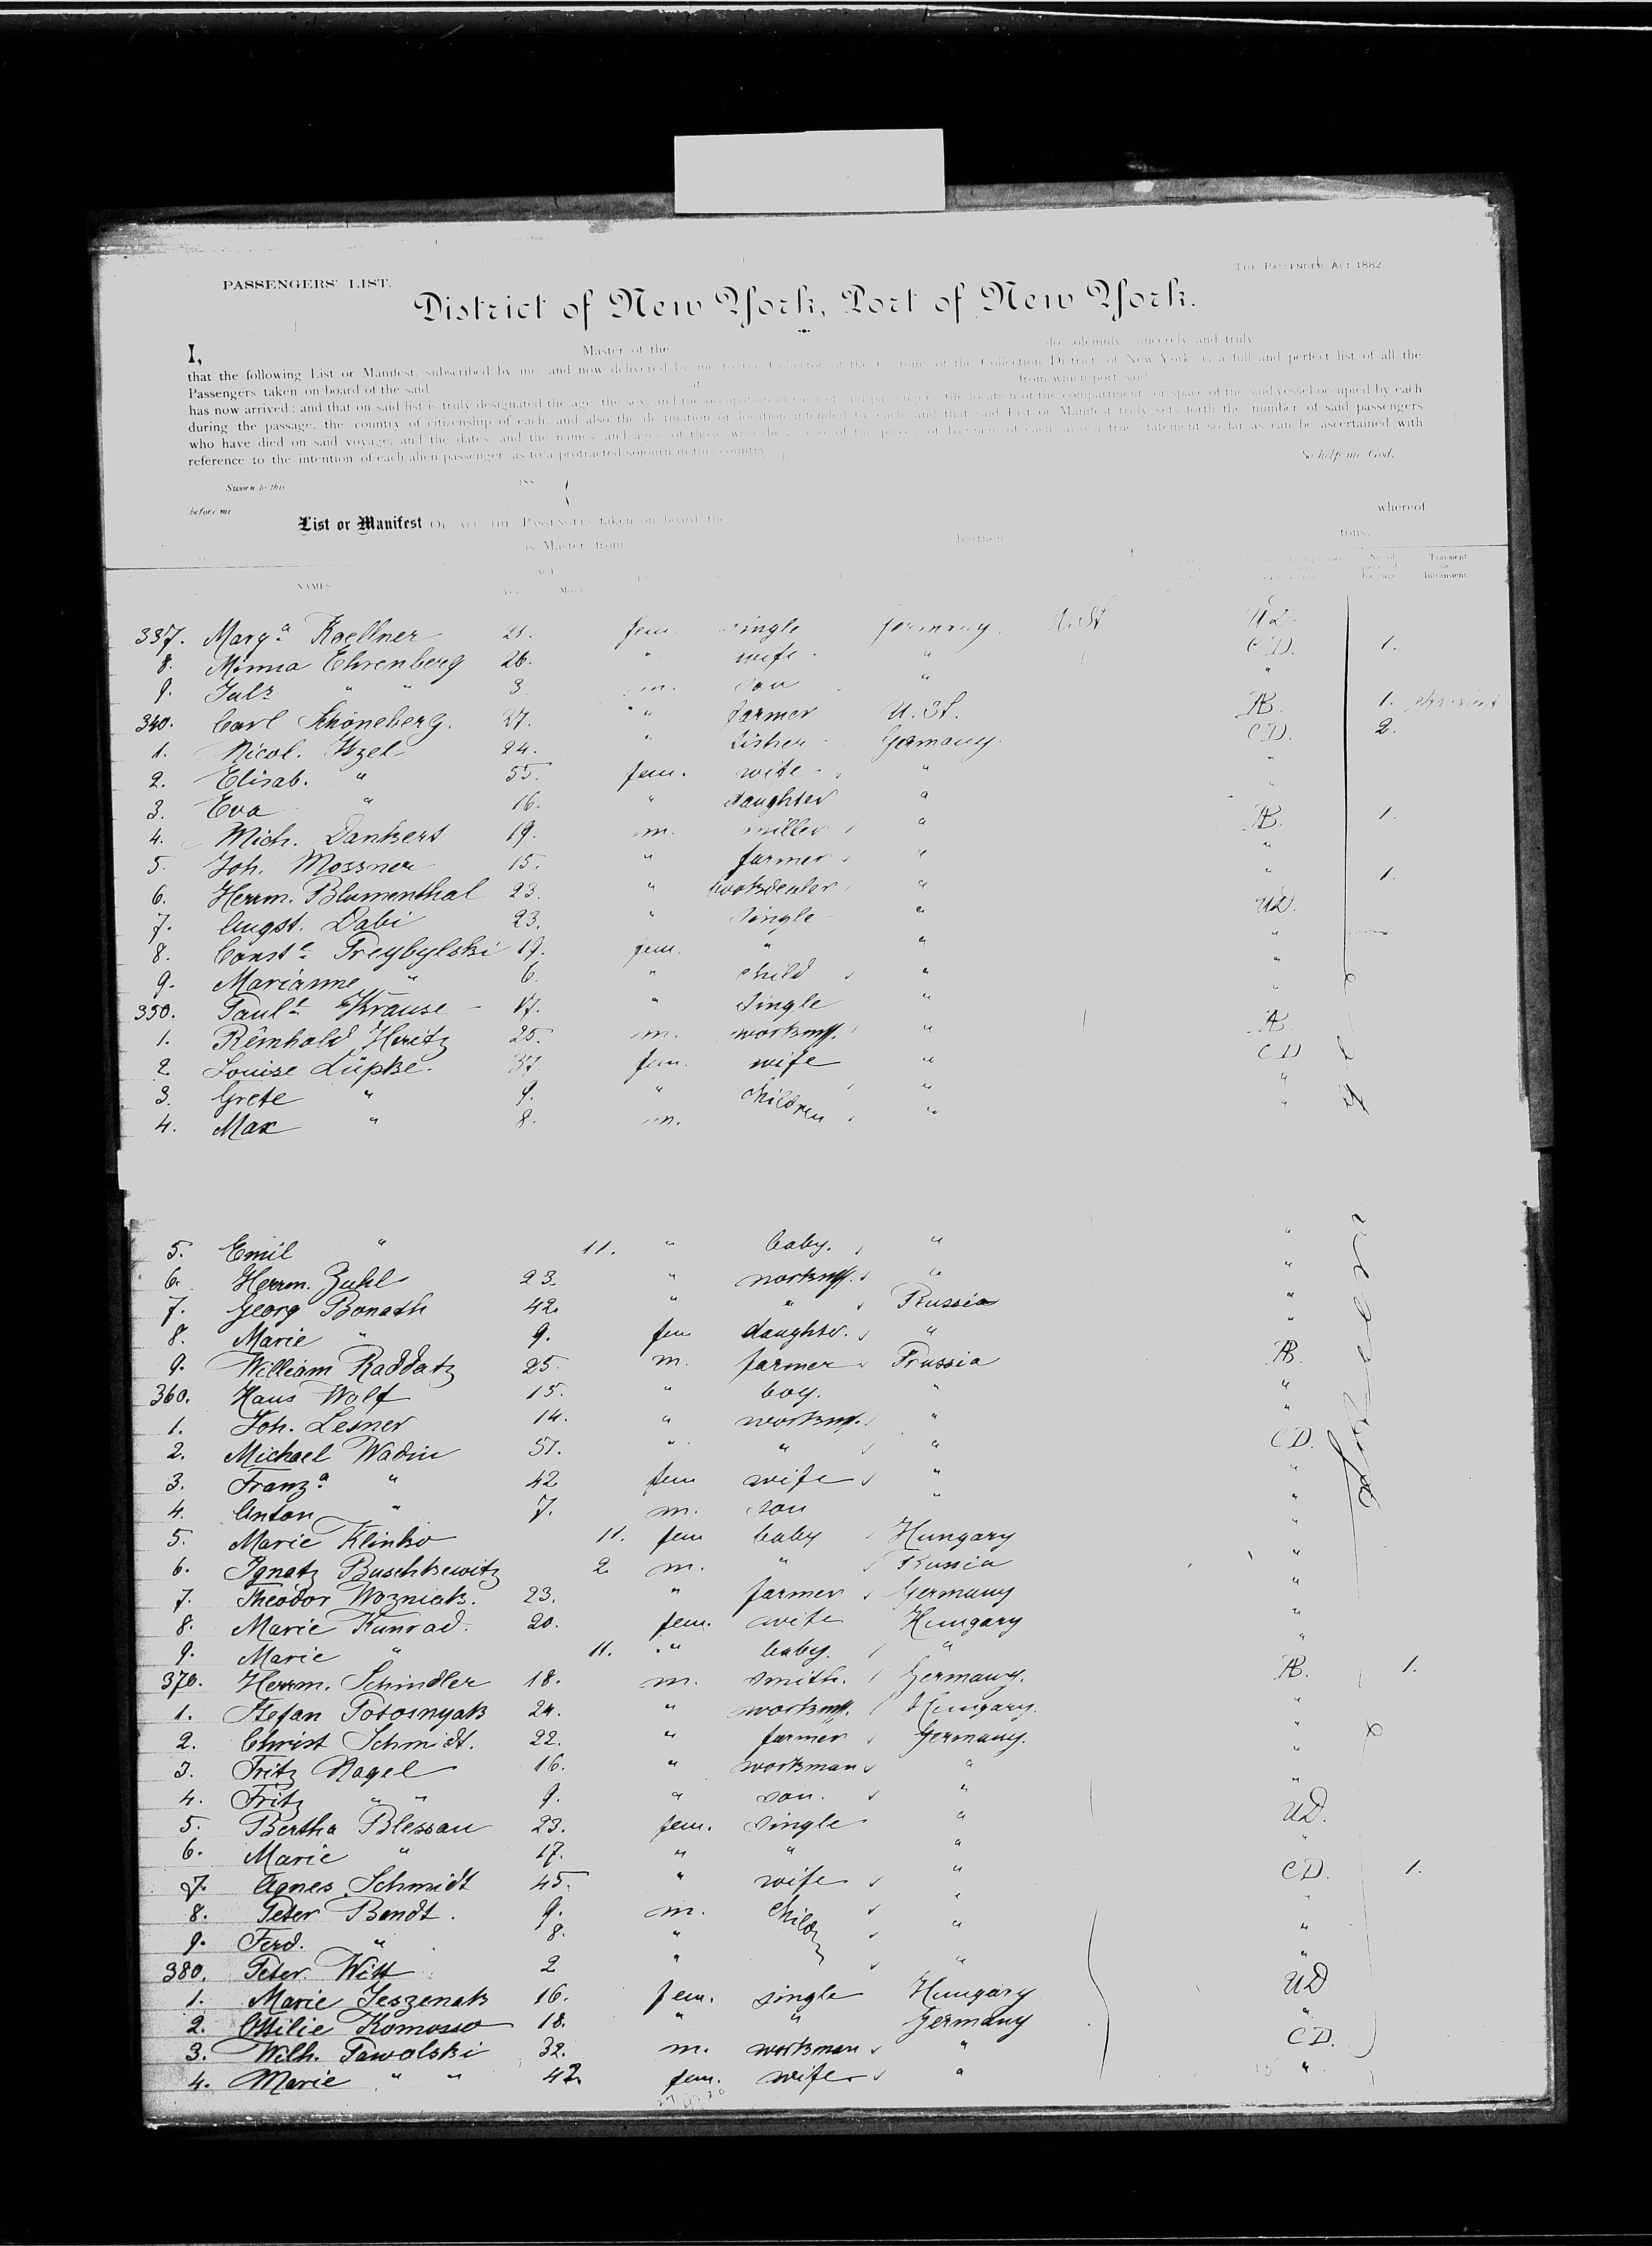 PASSENGERS' LIST.
THE PASSENGER ACT 1882
District of New York, Port of New York.
I, Master of the do solemnly, sincerely and truly
that the following List or Manifest, subscribed by me, and now delivered by me to the Collector of the Customs of the Collection District of New York, is a full and perfect list of all the
Passengers taken on board of the said at from which port said
has now arrived; and that on said list is truly designated the age, the sex, and the occupation of each of said passengers, the location of the compartment or space of the said vessel occupied by each
during the passage, the country of citizenship of each, and also the destination or location intended by each; and that said List or Manifest truly sets forth the number of said passengers
who have died on said voyage, and the dates and the names and ages of those who died, also of the pieces of baggage of each, also a true statement so far as can be ascertained with
reference to the intention of each alien passenger as to a protracted sojourn in this country
So help me God.
Sworn to this 188
before me
whereof
List or Manifest OF ALL THE PASSENGERS taken on board the
is Master from burthen tons.
NAMES AGE Transient or Intransient
337. Marga Koellner 21. fem. single Germany. U. St U.D.
8. Minna Ehrenberg 26. " wife " C.D. 1.
9. Juls " " 3. m. son " "
340. Carl Schöneberg. 27. " farmer U. St. AB. 1.
1. Nicol. 24. " Germany. C.D. 2.
2. Elisab. " 55. fem. wife " "
3. Eva " 16. " daughter " "
4. Mich. Dankert 19. m. miller " AB. 1.
5. Joh. Mossner 15. " farmer " "
6. Herrm. Blumenthal 23. " bookdealer " " 1.
7. Augst. Dabi 23. " single " UD.
8. Conste Preybylski 19. fem. " " "
9. Marianne " 6. " child " "
350. Paule Krause 17. " single " "
1. Reinhold Heritz 25. m. workm. " AB.
2. Louise Lüpke. 37. fem. wife " CD
3. Grete " 9. " children " "
4. Max " 8. m. " "
5. Emil " 11. " baby. " "
6. Herrm. Zuhl 23. " workm. " "
7. Georg Bonath 42. " " Russia "
8. Marie " 9. fem daughter. " "
9. William Raddatz 25. m. farmer Prussia AB.
360. Hans Wolf 15. " boy. " "
1. Joh. Lesner 14. " workm. " "
2. Michael Wadin 51. " " " CD.
3. Franza " 42 fem wife " "
4. Anton " 7. m. son " "
5. Marie Klinko 11. fem baby Hungary "
6. Ignatz Buschkewitz 2. m. " Russia "
7. Theodor Wozniak. 23. " farmer Germany "
8. Marie Kunrad. 20. fem. wife Hungary "
9. Marie " 11. " baby. " "
370. Herrm. Schindler 18. m. smith. Germany. AB. 1.
1. Stefan Potosnyak 24. " workm. Hungary. "
2. Christ Schmidt. 22. " farmer Germany. "
3. Fritz Nagel 16. " workman " "
4. Fritz " " 9. " son. " "
5. Bertha Blessau 23. fem. single " UD.
6. Marie " 17. " " " "
7. Agnes Schmidt 45. " wife " CD. 1.
8. Peter Bendt. 9. m. child " "
9. Ferd. " 8. " " "
380. Peter Witt 2 " " "
1. Marie Jeszenak 16. fem. single Hungary UD
2. Ottilie Komosso 18. " " Germany "
3. Wilh. Pawolski 32. m. workman " CD.
4. Marie " " 42. fem. wife " "